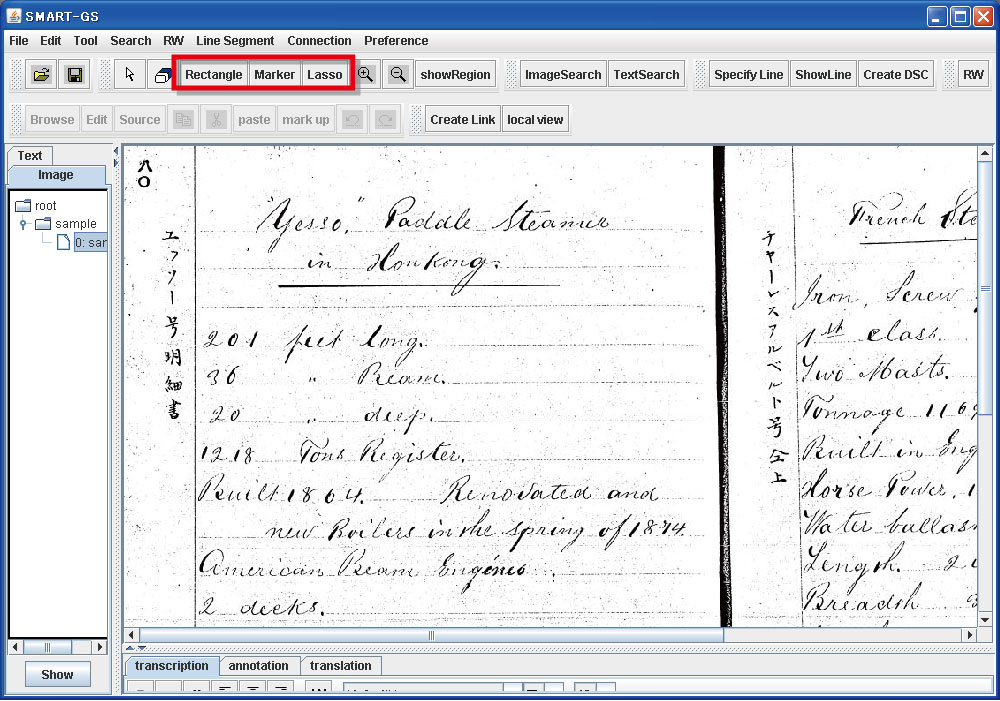 SMART-GS
File Edit Tool Search RW Line Segment Connection Preference
Rectangle Marker Lasso showRegion ImageSearch TextSearch Specify Line ShowLine Create DSC RW
Browse Edit Source paste mark up Create Link local view
Text
Image
root
sample
0: sar
Show
八〇
エッソー号明細書
"Yesso," Paddle Steamer
in Honkong.
201 feet long.
36 " Beam.
20 " deep.
1218 Tons Register.
Built 1864. Renovated and
new Boilers in the spring of 1874.
American Beam Engines.
2 decks.
チャーレスアルベルト号仝上
French Ste
Iron, Screw
1st class.
Two Masts.
Tonnage 116
Built in Eng
Horse Power, 1
Water ballas
Length. 2
Breadth
transcription annotation translation